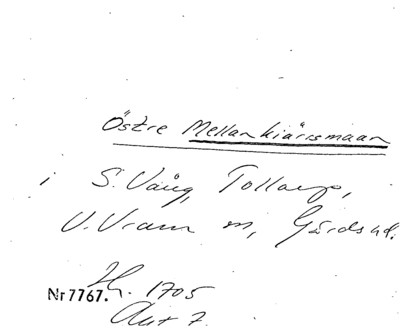 Östre Mellankiärrsmaan
i S. Vång, Tollarp,
V. Vram sn, Gärds hd.
Nr 7767. Hr. 1705
Akt 7.